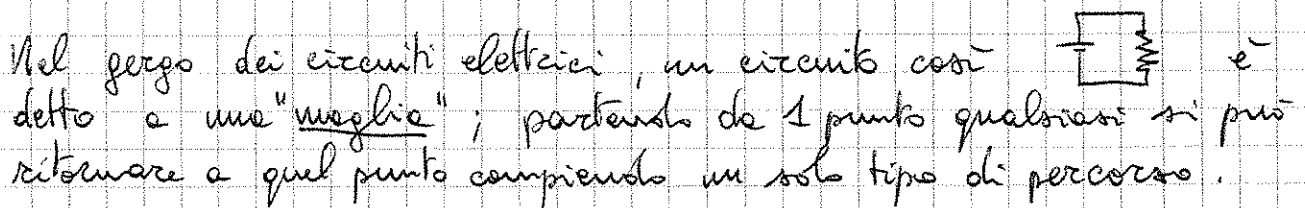 Nel gergo dei circuiti elettrici, un circuito così è
detto a una "maglia"; partendo da 1 punto qualsiasi si può
ritornare a quel punto compiendo un solo tipo di percorso.